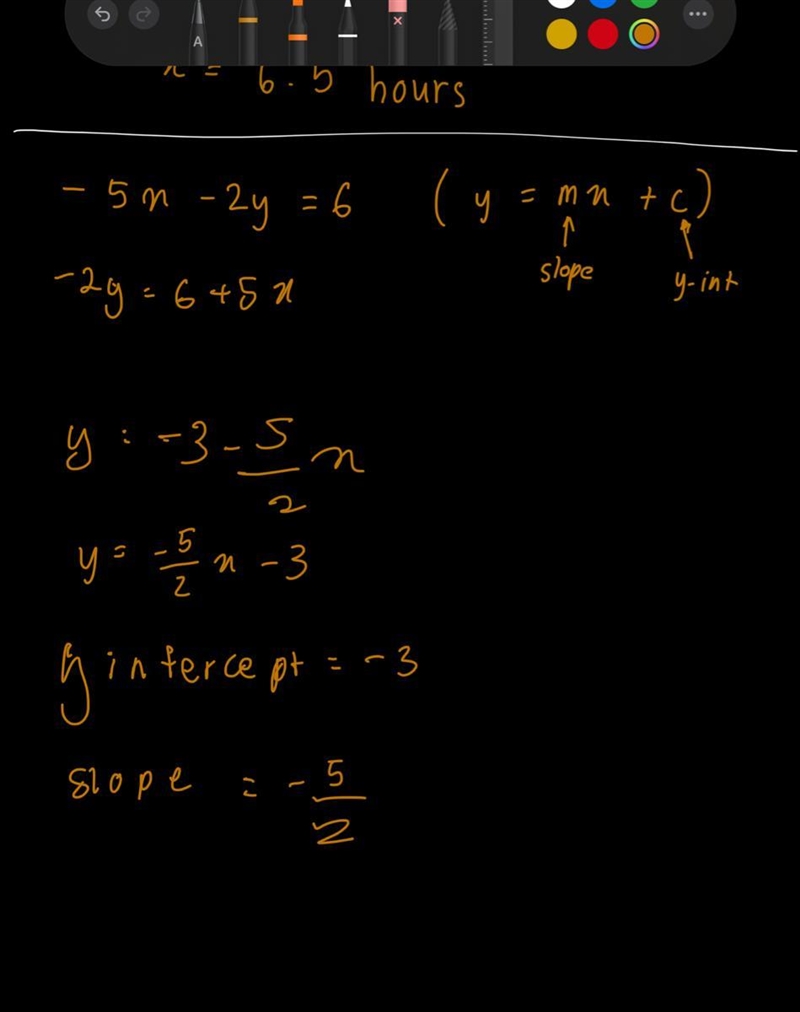 A
x = 6.5 hours
-5x - 2y = 6 (y = mx + c)
slope y-int
-2y = 6 + 5x
y = -3 - 5/2 x
y = -5/2 x - 3
y intercept = -3
slope = -5/2